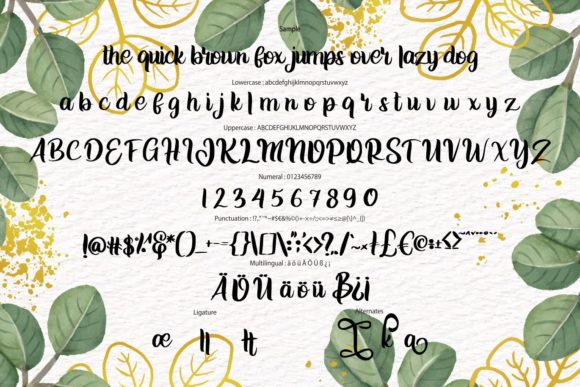 Sample
the quick brown fox jumps over lazy dog
Lowercase : abcdefghijklmnopqrstuvwxyz
a b c d e f g h i j k l m n o p q r s t u v w x y z
Uppercase : ABCDEFGHIJKLMNOPQRSTUVWXYZ
ABCDEFGHIJKLMNOPQRSTUVWXYZ
Numeral : 0123456789
1 2 3 4 5 6 7 8 9 0
Punctuation :
Multilingual : ä ö ü Ä Ö Ü ß ¿ ¡
Ä Ö Ü ä ö ü ß ¿ ¡
Ligature Alternates
æ ll tt I k a